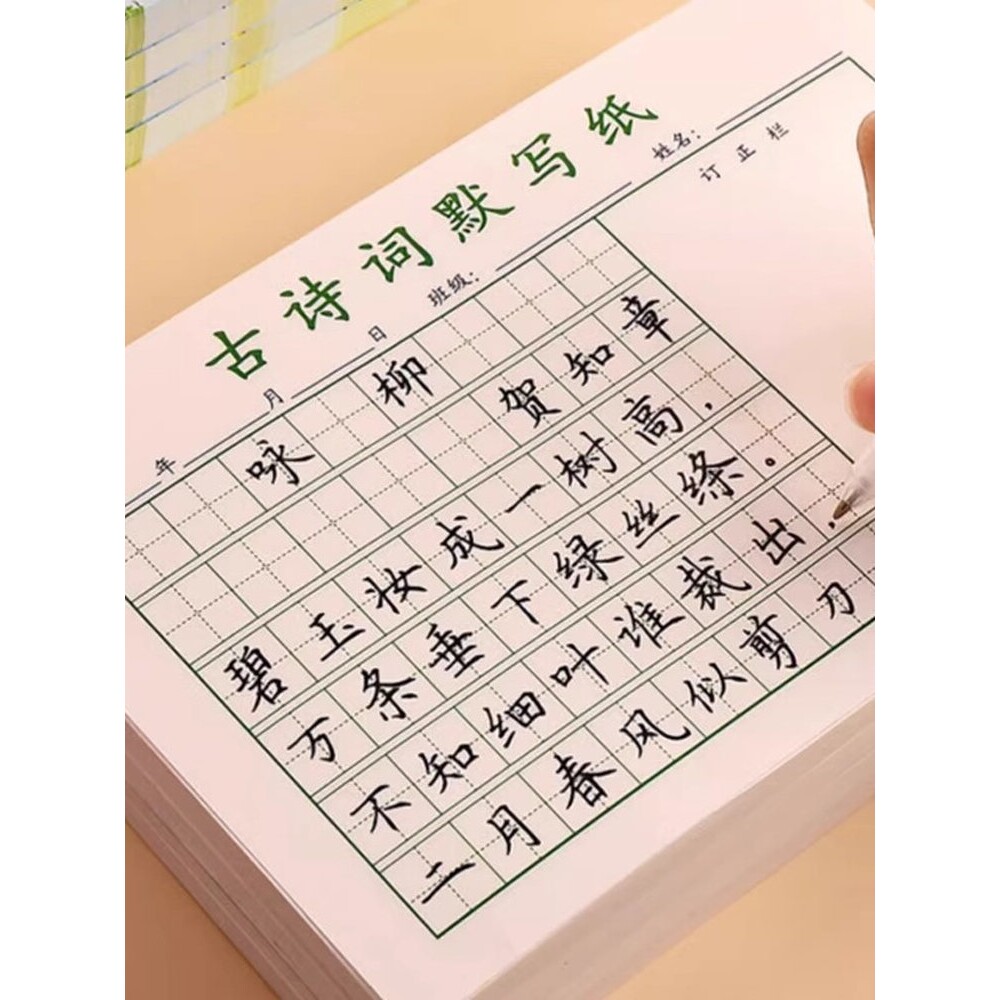 古诗词默写纸
年 月 日 班级: 姓名:
订正栏
咏柳
贺知章
碧玉妆成一树高,
万条垂下绿丝绦。
不知细叶谁裁出,
二月春风似剪刀